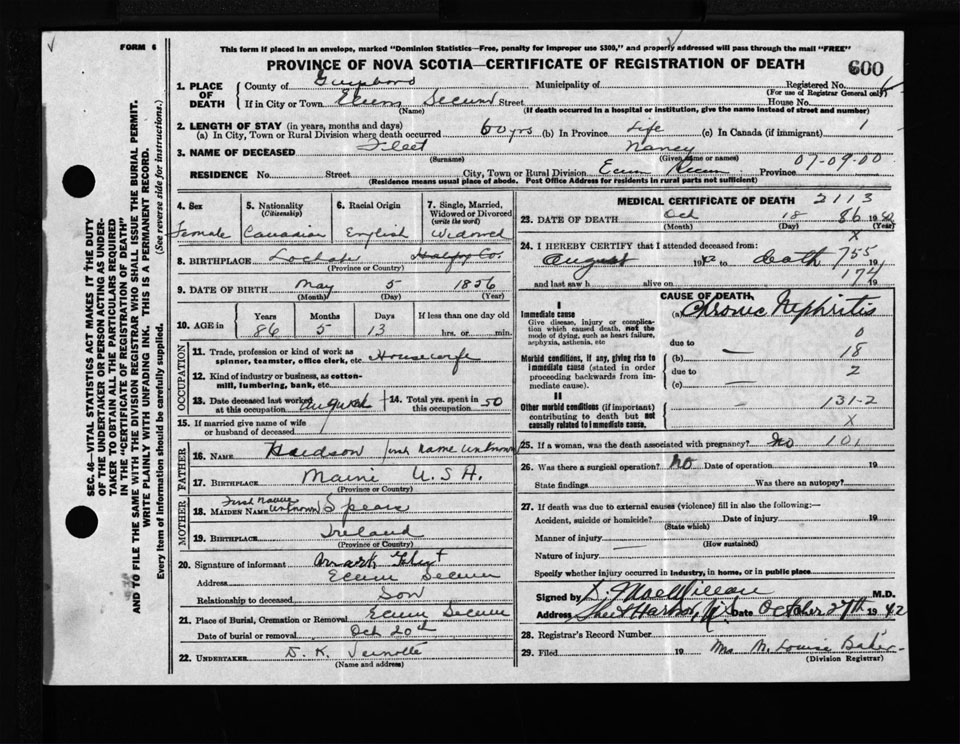 FORM 6
This form if placed in an envelope, marked "Dominion Statistics—Free, penalty for improper use $300," and properly addressed will pass through the mail "FREE"
PROVINCE OF NOVA SCOTIA—CERTIFICATE OF REGISTRATION OF DEATH
600
SEC. 46—VITAL STATISTICS ACT MAKES IT THE DUTY
OF THE UNDERTAKER OR PERSON ACTING AS UNDER-
TAKER TO OBTAIN ALL THE PARTICULARS REQUIRED
IN THE "CERTIFICATE OF REGISTRATION OF DEATH"
AND TO FILE THE SAME WITH THE DIVISION REGISTRAR WHO SHALL ISSUE THE BURIAL PERMIT.
WRITE PLAINLY WITH UNFADING INK. THIS IS A PERMANENT RECORD.
Every item of Information should be carefully supplied. (See reverse side for instructions.)
1. PLACE OF DEATH
County of Guysboro Municipality of Registered No.
(For use of Registrar General only)
If in City or Town Ecum Secum Street House No.
(Name) (If death occurred in a hospital or institution, give the name instead of street and number)
2. LENGTH OF STAY (in years, months and days)
(a) In City, Town or Rural Division where death occurred 60 yrs (b) In Province Life (c) In Canada (if immigrant) 1
3. NAME OF DECEASED Fleet Nancy
(Surname) (Given name or names) 07-09-00
RESIDENCE No. Street City, Town or Rural Division Ecum Secum Province
(Residence means usual place of abode. Post Office Address for residents in rural parts not sufficient)
4. Sex 5. Nationality (Citizenship) 6. Racial Origin 7. Single, Married, Widowed or Divorced (write the word)
Female Canadian English Widowed
8. BIRTHPLACE Hfx Co.
(Province or Country)
9. DATE OF BIRTH May 5 1856
(Month) (Day) (Year)
10. AGE in Years Months Days If less than one day old
86 5 13 hrs. or min.
OCCUPATION
11. Trade, profession or kind of work as spinner, teamster, office clerk, etc. Housewife
12. Kind of industry or business, as cotton-mill, lumbering, bank, etc.
13. Date deceased last worked at this occupation August 14. Total yrs. spent in this occupation 50
15. If married give name of wife or husband of deceased
FATHER
16. NAME Hudson first name unknown
17. BIRTHPLACE Maine U.S.A.
(Province or Country)
MOTHER
18. MAIDEN NAME first name unknown Spears
19. BIRTHPLACE Ireland
(Province or Country)
20. Signature of informant Mark Fleet
Address Ecum Secum
Relationship to deceased Son
21. Place of Burial, Cremation or Removal Ecum Secum
Date of burial or removal Oct 20th
22. UNDERTAKER D. K.
(Name and address)
MEDICAL CERTIFICATE OF DEATH 2113
23. DATE OF DEATH Oct 18 86 19
(Month) (Day) (Year)
X
24. I HEREBY CERTIFY that I attended deceased from:
August 1942 to death 755
and last saw h alive on 174 19
CAUSE OF DEATH
I
Immediate cause (a) Chronic Nephritis
Give disease, injury or complication which caused death, not the mode of dying, such as heart failure, asphyxia, asthenia, etc
0
due to
Morbid conditions, if any, giving rise to immediate cause (stated in order proceeding backwards from immediate cause). (b) — 18
due to 2
(c) —
II
Other morbid conditions (if important) contributing to death but not causally related to immediate cause. — 131-2
X
25. If a woman, was the death associated with pregnancy? No 101
26. Was there a surgical operation? No Date of operation 19
State findings Was there an autopsy?
27. If death was due to external causes (violence) fill in also the following:—
Accident, suicide or homicide? Date of injury 19
(State which)
Manner of injury
(How sustained)
Nature of injury —
Specify whether injury occurred in industry, in home, or in public place
Signed by D. MacMillan M.D.
Address Sheet Harbor, N.S. Date October 27th 1942
28. Registrar's Record Number
29. Filed 19 Mrs M. Louise Baker
(Division Registrar)